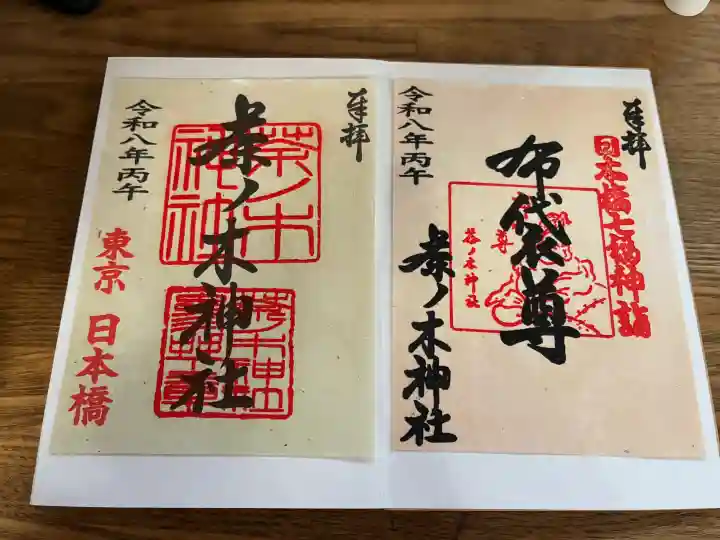 奉拝
茶ノ木神社
令和八年丙午
東京 日本橋
茶ノ木
神社
奉拝
日本橋七福神詣
布袋尊
茶ノ木神社
令和八年丙午
尊
茶ノ木神社